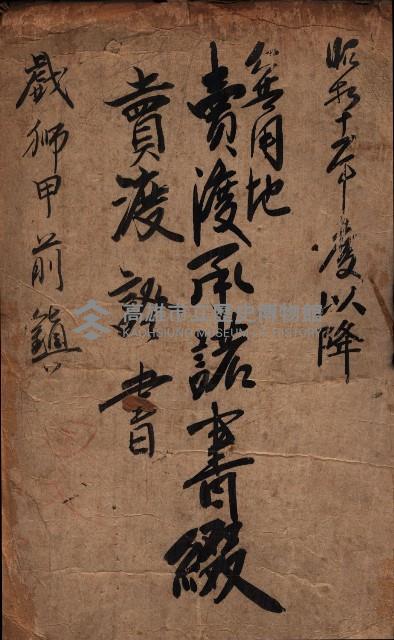 昭和十二年度以降
無用地
賣渡承諾書綴
賣渡証書
戲獅甲前鎮
高雄市立歷史博物館
KAOHSIUNG MUSEUM OF HISTORY